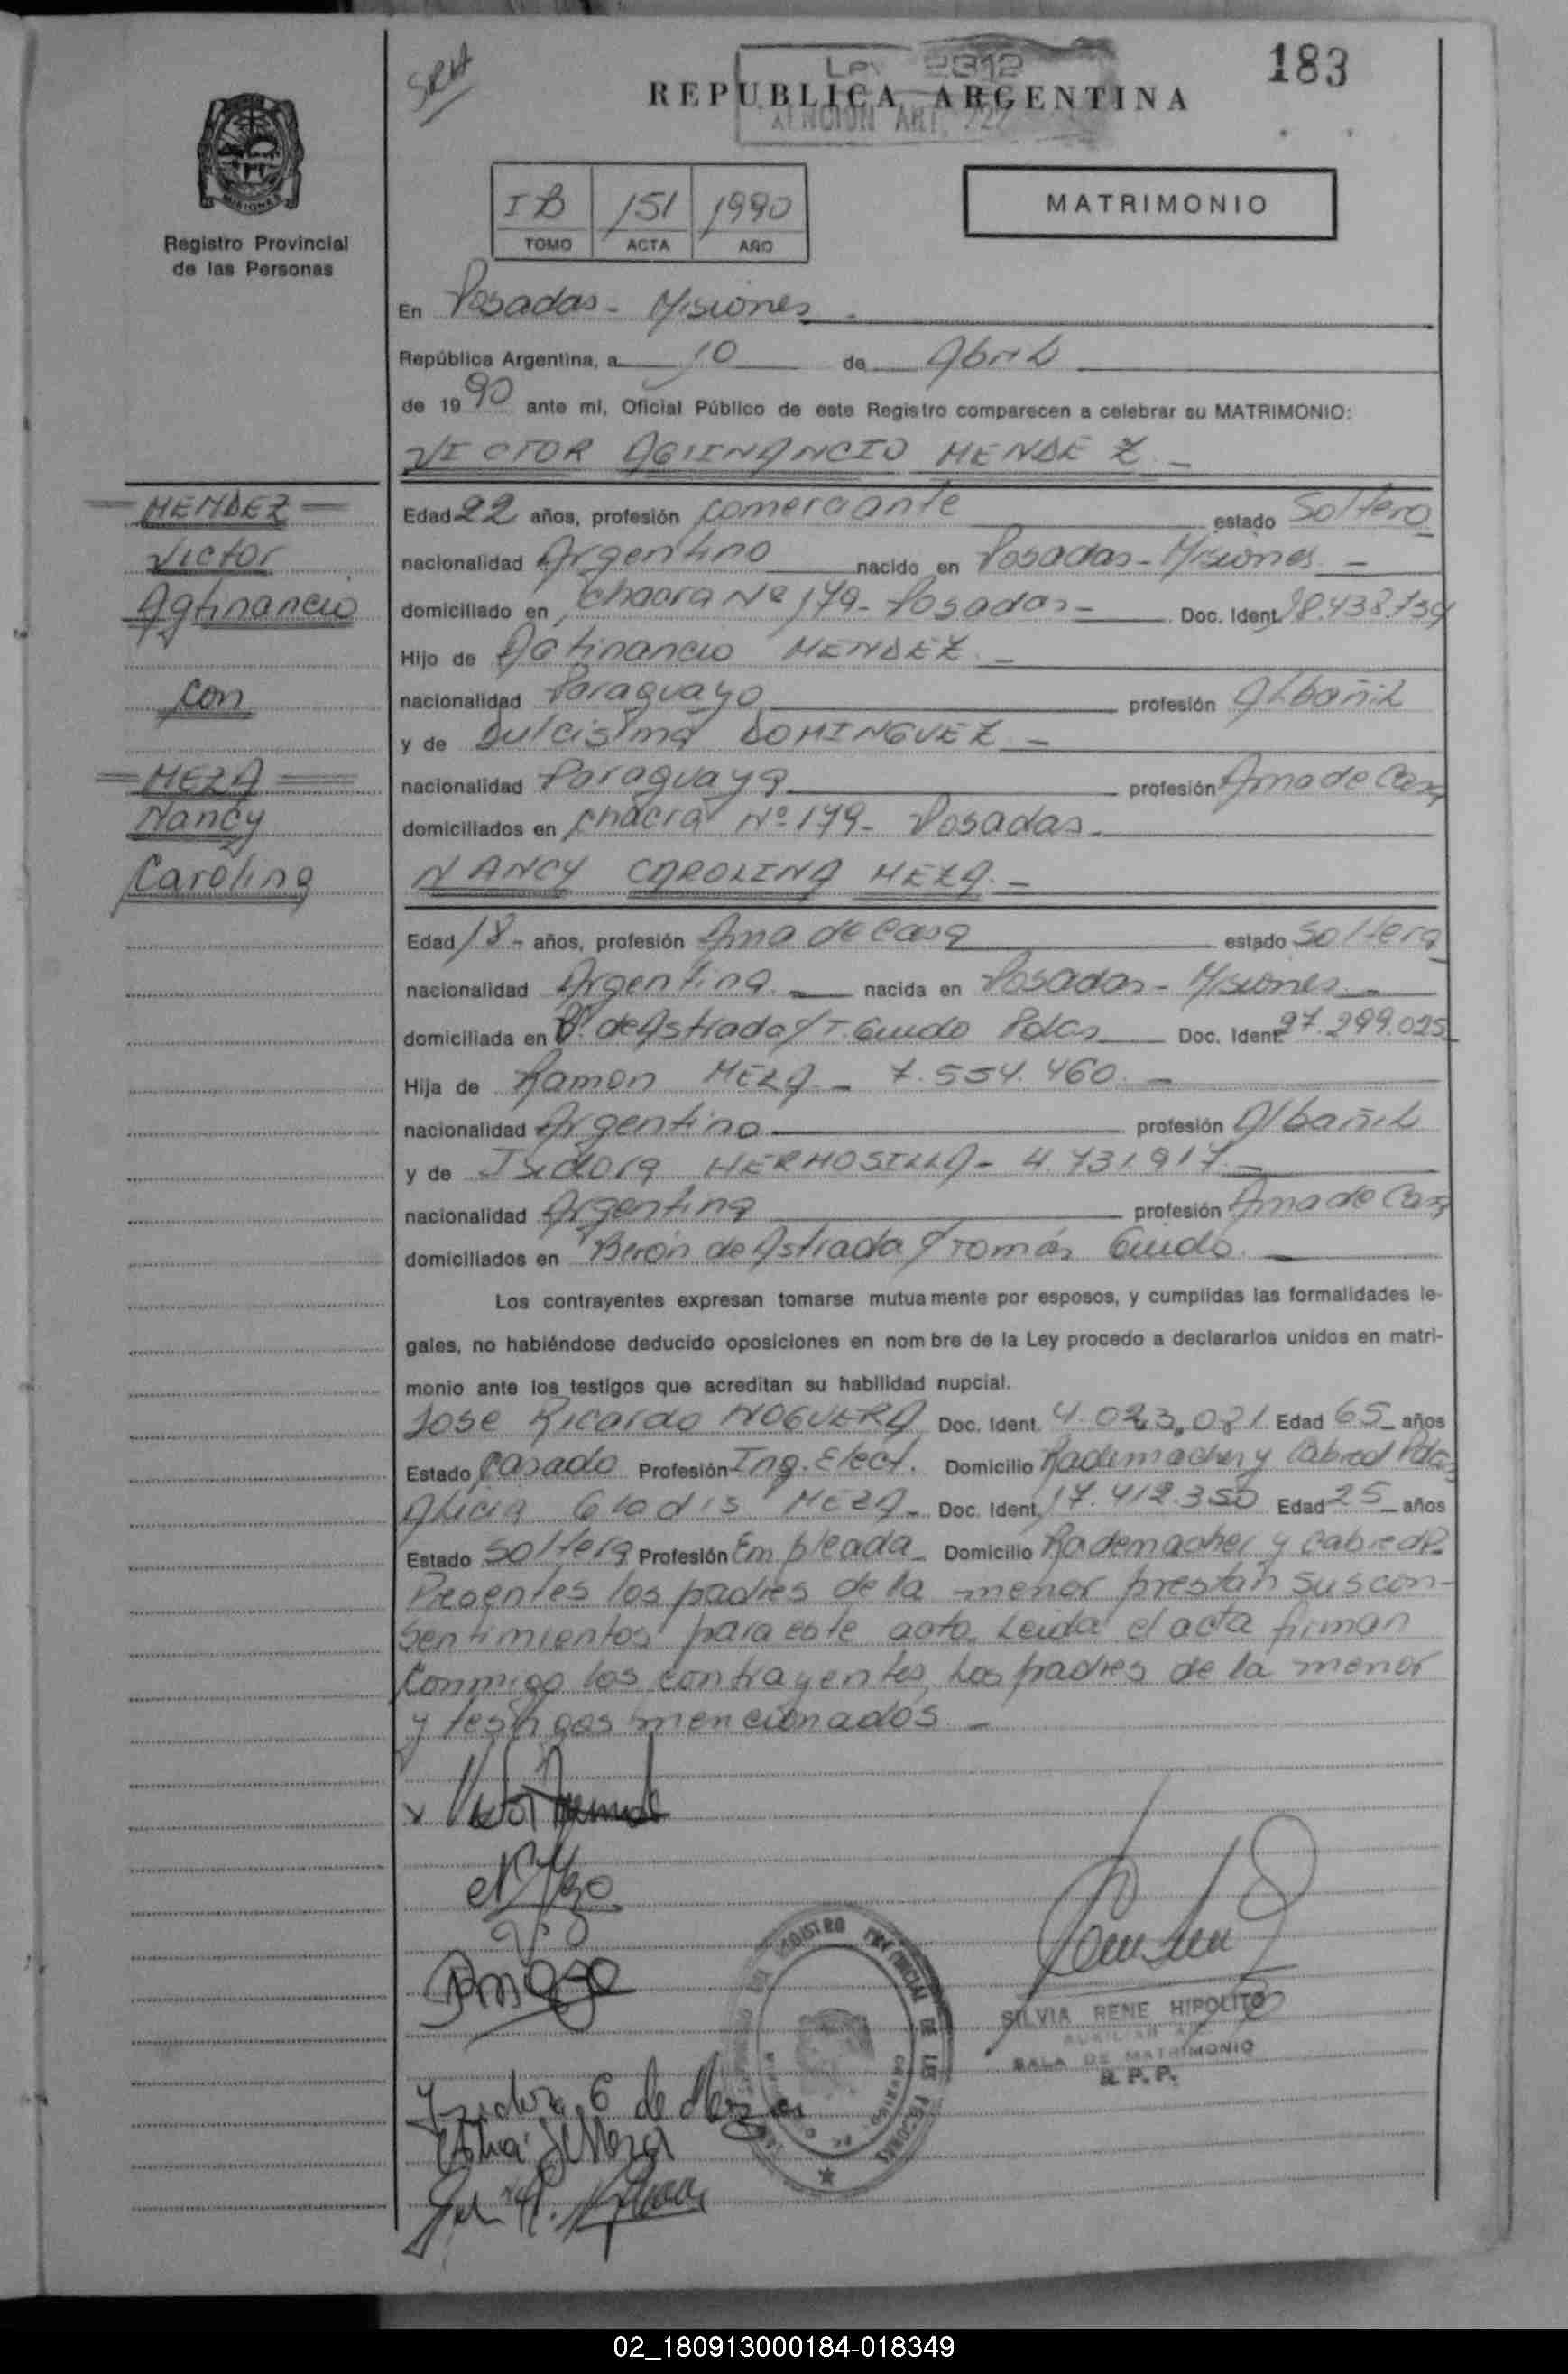 183
Ley 2312
REPUBLICA ARGENTINA
ART. 227
MISIONES
Registro Provincial
de las Personas
IB 151 1990
TOMO ACTA AÑO
MATRIMONIO
En Posadas - Misiones
República Argentina, a 10 de Abril
de 1990 ante mi, Oficial Público de este Registro comparecen a celebrar su MATRIMONIO:
VICTOR MENDEZ
MENDEZ
Victor
con
MEZA
Nancy
Carolina
Edad 22 años, profesión comerciante estado Soltero
nacionalidad Argentino nacido en Posadas - Misiones -
domiciliado en chacra Nº 179 - Posadas - Doc. Ident. 18.438.
Hijo de MENDEZ -
nacionalidad Paraguayo profesión Albañil
y de Dulcisima DOMINGUEZ -
nacionalidad Paraguaya profesión Ama de Casa
domiciliados en chacra Nº 179 - Posadas -
NANCY CAROLINA MEZA -
Edad 18 - años, profesión Ama de Casa estado Soltera
nacionalidad Argentina - nacida en Posadas - Misiones -
domiciliada en B. de Astrada y T. Guido Pdas Doc. Ident. 27.299.025
Hija de Ramon MEZA - 7.554.460 -
nacionalidad Argentino profesión Albañil
y de Isidora HERMOSILLA - 4.731.917 -
nacionalidad Argentina profesión Ama de Casa
domiciliados en Berón de Astrada y Tomás Guido -
Los contrayentes expresan tomarse mutuamente por esposos, y cumplidas las formalidades le-
gales, no habiéndose deducido oposiciones en nombre de la Ley procedo a declararlos unidos en matri-
monio ante los testigos que acreditan su habilidad nupcial.
Jose Ricardo NOGUERA Doc. Ident. 4.023.021 Edad 65 años
Estado casado Profesión Ing. Elect. Domicilio Rademacher y Cabred Pdas
Alicia Gladis MEZA - Doc. Ident. 17.412.350 Edad 25 años
Estado Soltera Profesión Empleada Domicilio Rademacher y Cabred P.
Presentes los padres de la menor prestan sus con-
sentimientos para este acto. Leida el acta firman
Conmigo los contrayentes, los padres de la menor
y testigos mencionados -
SILVIA RENE HIPOLITO
AUXILIAR
SALA DE MATRIMONIO
R. P. P.
REGISTRO PROVINCIAL DE LAS PERSONAS
02_180913000184-018349